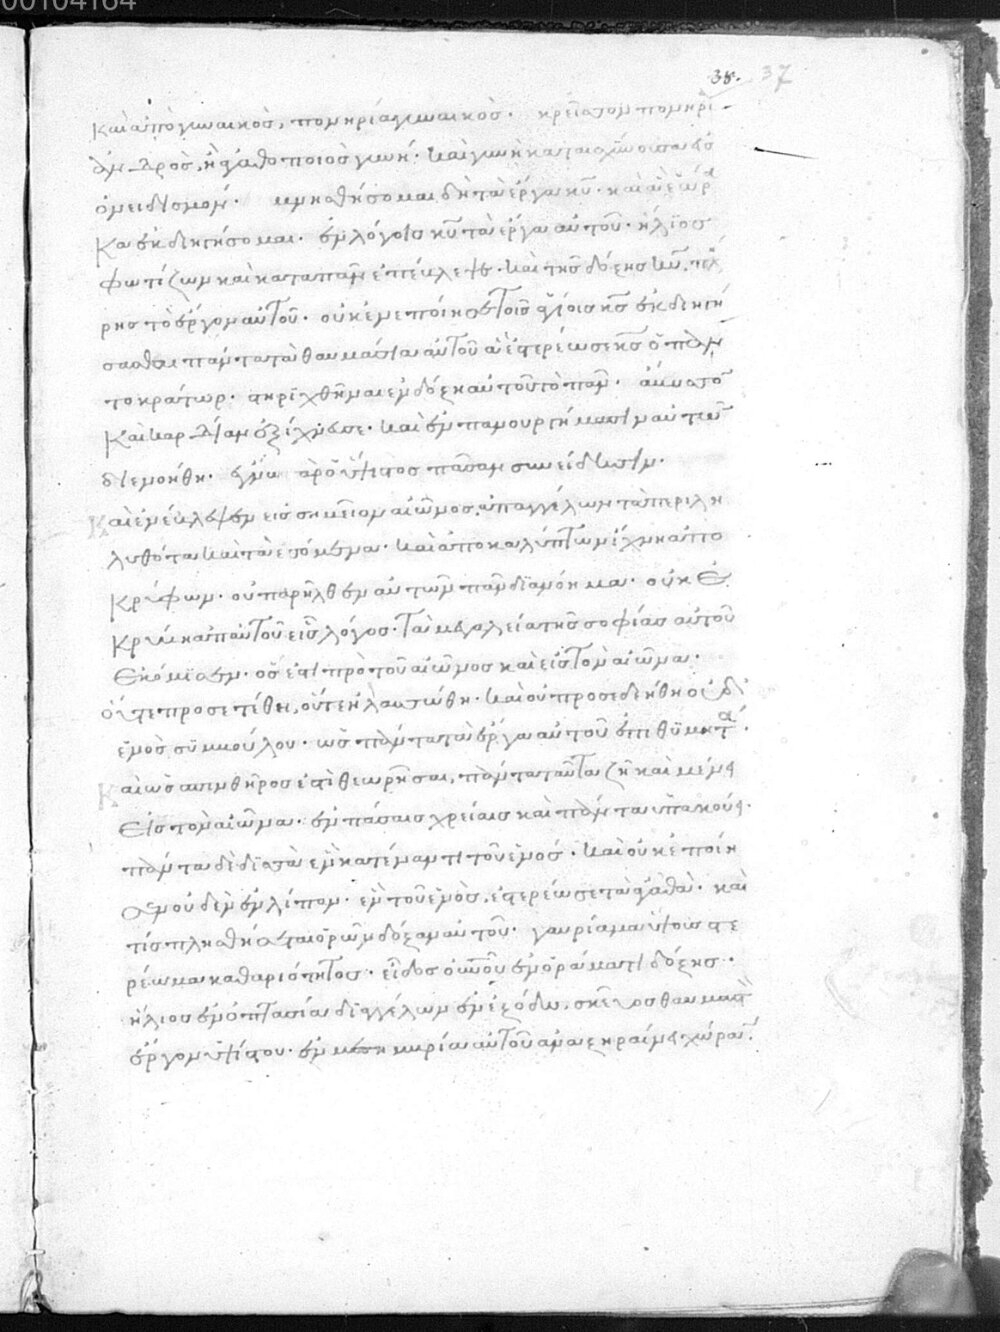 00104164
38. 37
καὶ ἀπὸ γυναικὸς, πονηρία γυναικός. κρείσσον πονηρί
ἀνδρὸς, ἢ ἀγαθοποιὸς γυνή. καὶ γυνὴ καταισχύνουσα εἰς
ὀνειδισμόν. μνησθήσομαι δὴ τὰ ἔργα κυ. καὶ ἃ ἑώρα
κα ἐκδιηγήσομαι. ἐν λόγοις κυ τὰ ἔργα αὐτοῦ. ἥλιος
φωτίζων καὶ κατὰ πᾶν ἐπέβλεψε. καὶ τῆς δόξης κυ πλή
ρης τὸ ἔργον αὐτοῦ. οὐκ ἐνεποίησε τοῖς ἁγίοις κς ἐκδιηγή
σασθαι πάντα τὰ θαυμάσια αὐτοῦ ἃ ἐστερέωσε κς ὁ παν
τοκράτωρ. στηριχθῆναι ἐν δόξῃ αὐτοῦ τὸ πᾶν. ἄβυσσον
καὶ καρδίαν ἐξίχνευσε. καὶ ἐν πανουργήμασιν αὐτῶν
διενοήθη. ἔγνω γὰρ ὁ ὕψιστος πᾶσαν συνείδησιν.
καὶ ἐνέβλεψεν εἰς σημεῖον αἰῶνος, ἀπαγγέλων τὰ παρελη
λυθότα καὶ τὰ ἐσόμενα. καὶ ἀποκαλύπτων ἴχνη ἀπο
κρύφων. οὐ παρῆλθεν αὐτὸν πᾶν διανόημα. οὐκ ἐ
κρύβη ἀπ' αὐτοῦ εἷς λόγος. τὰ μεγαλεῖα τῆς σοφίας αὐτοῦ
ἐκόσμησεν. ὅς ἐστι πρὸ τοῦ αἰῶνος καὶ εἰς τὸν αἰῶνα.
οὔτε προσετέθη, οὔτε ἠλαττώθη. καὶ οὐ προσεδεήθη οὐδ
ενὸς συμβούλου. ὡς πάντα τὰ ἔργα αὐτοῦ ἐπιθυμητά.
καὶ ὡς σπινθῆρος ἐστὶ θεωρῆσαι, πάντα ταῦτα ζῇ καὶ μένει
εἰς τὸν αἰῶνα. ἐν πάσαις χρείαις καὶ πάντα ὑπακούει.
πάντα δὲ δισσὰ ἓν κατέναντι τοῦ ἑνός. καὶ οὐκ ἐποίη
σεν οὐδὲν ἐλλίπον. ἓν τοῦ ἑνὸς, ἐστερέωσε τὰ ἀγαθά. καὶ
τίς πλησθήσεται ὁρῶν δόξαν αὐτοῦ. γαυρίαμα ὕψους στε
ρέωμα καθαριότητος. εἶδος οὐνοῦ ἐν ὁράματι δόξης.
ἥλιος ἐν ὀπτασίᾳ διαγγέλων ἐν ἐξόδῳ, σκεῦος θαυμαστὸν
ἔργον ὑψίστου. ἐν μεσημβρίᾳ αὐτοῦ ἀναξηραίνει χώραν.